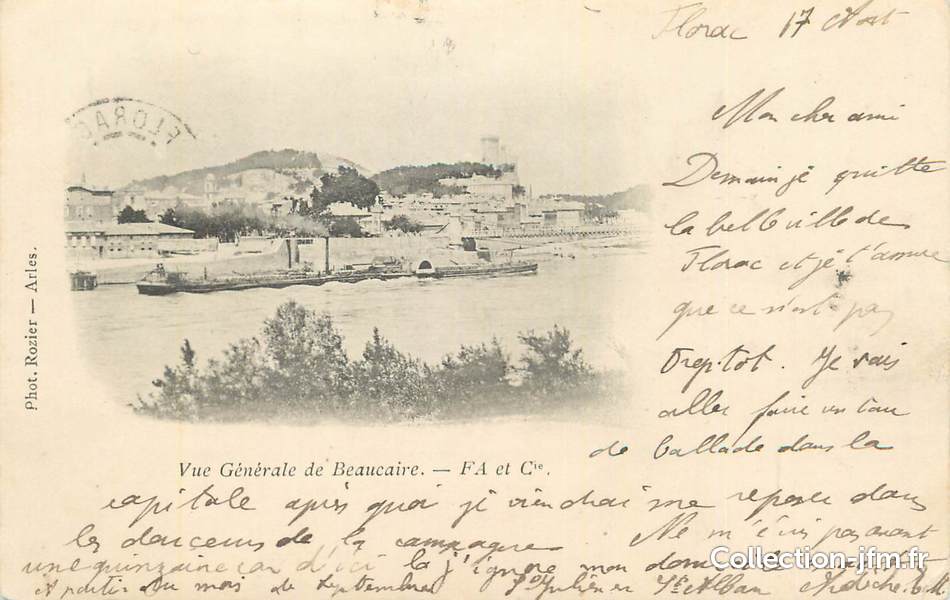 Florac 17 Aout
FLORAC
Mon cher ami
Demain je quitte
la belle ville de
Florac et je t'assure
que ce n'est pas
trop tot. Je vais
aller faire un tour
de ballade dans la
Phot. Rozier — Arles.
Vue Générale de Beaucaire. — FA et Cie.
capitale après quoi je viendrai me reposer dans
les douceurs de la campagne Ne m'écris pas avant
une quinzaine car d'ici la j'ignore mon domicile
A partir du mois de Septembre St Julien en St Alban Ardèche
Collection-jfm.fr